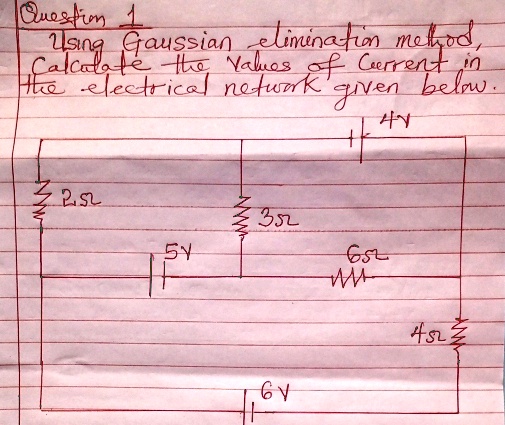 Question 1
Using Gaussian elimination method,
Calculate the Values of Current in
the electrical network given below.
4V
2Ω
3Ω
5V
6Ω
4Ω
6V